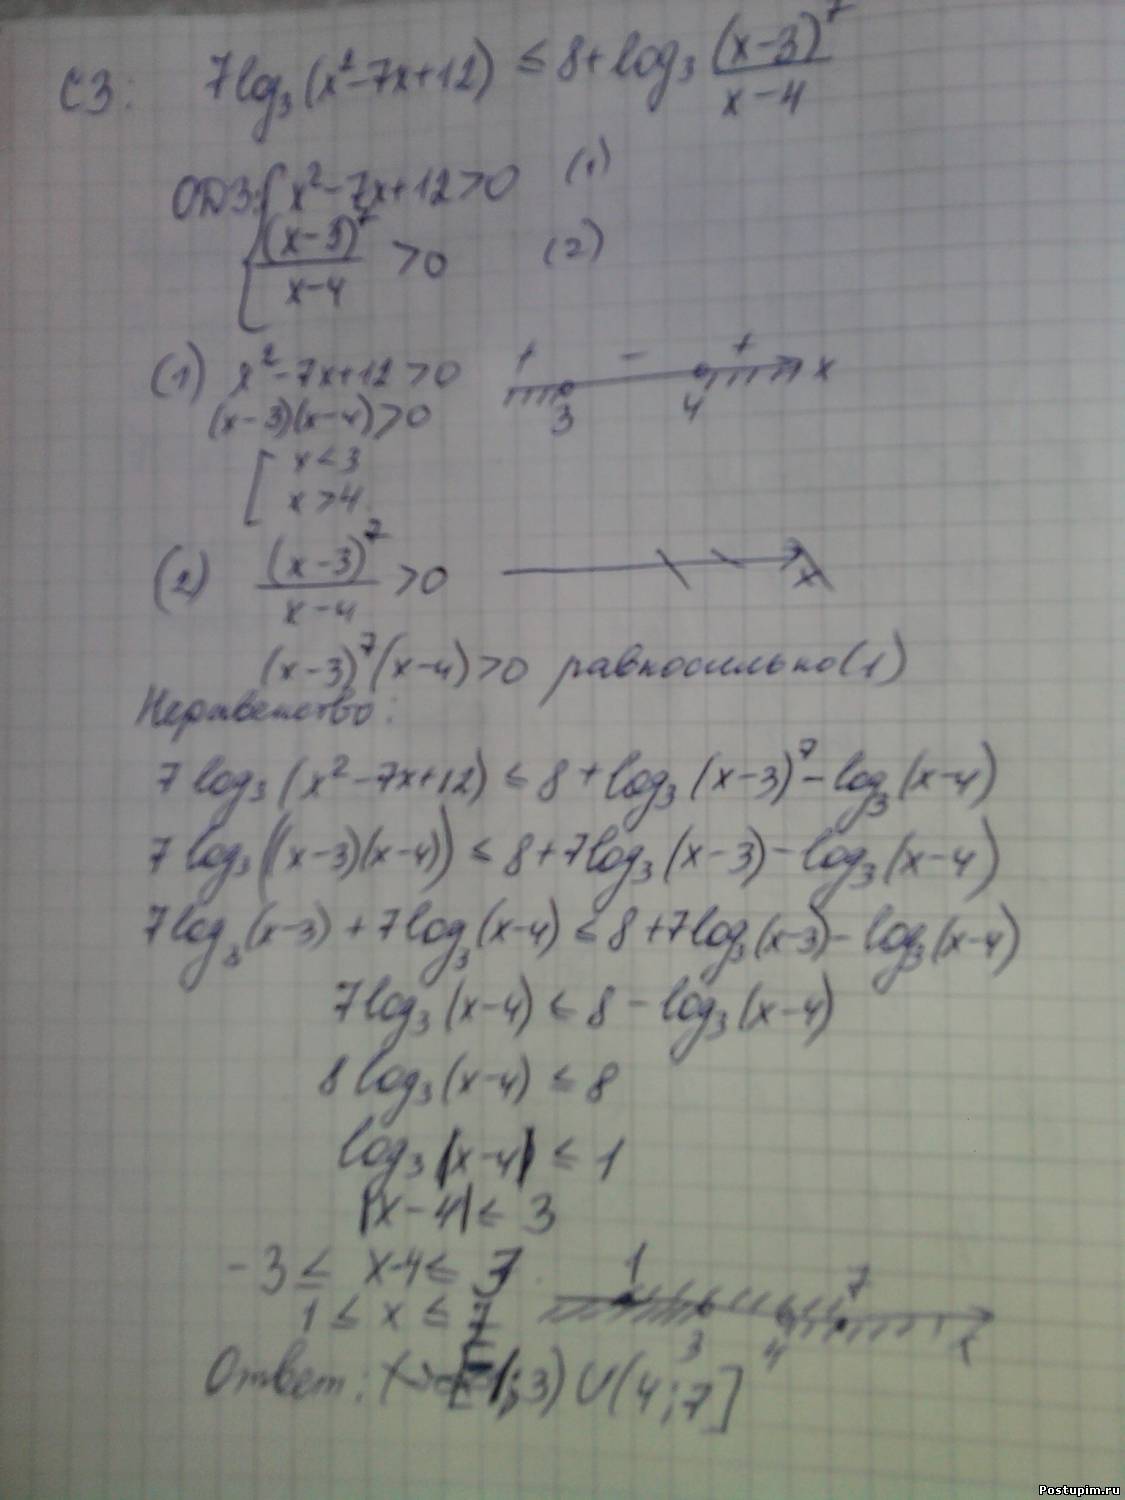 С3: 7log₃(x²-7x+12) ≤ 8+log₃ (x-3)⁷/(x-4)
ОДЗ: { x²-7x+12>0 (1)
(x-3)⁷/(x-4) >0 (2)
(1) x²-7x+12>0
+ - + x
3 4
(x-3)(x-4)>0
[ x<3
x>4
(2) (x-3)⁷/(x-4) >0
x
(x-3)⁷(x-4)>0 равносильно (1)
Неравенство:
7log₃(x²-7x+12) ≤ 8+log₃(x-3)⁷-log₃(x-4)
7log₃((x-3)(x-4)) ≤ 8+7log₃(x-3)-log₃(x-4)
7log₃(x-3)+7log₃(x-4) ≤ 8+7log₃(x-3)-log₃(x-4)
7log₃(x-4) ≤ 8-log₃(x-4)
8log₃(x-4) ≤ 8
log₃|x-4| ≤ 1
|x-4| ≤ 3
-3 ≤ x-4 ≤ 3
1 ≤ x ≤ 7
1 7
3 4 x
Ответ: x ∈ [1;3) U (4;7]
Postupim.ru